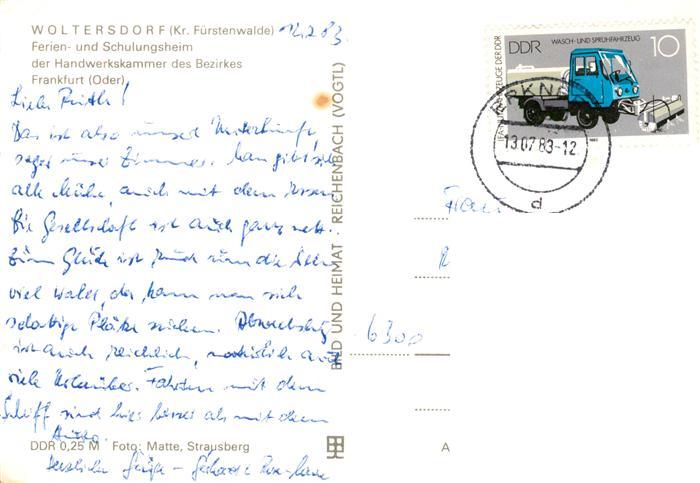 WOLTERSDORF (Kr. Fürstenwalde)
Ferien- und Schulungsheim
der Handwerkskammer des Bezirkes
Frankfurt (Oder)
12.7.83.
Das ist also unsere Unterkunft,
sogar unser Zimmer. Man gibt sich
alle Mühe, auch mit dem Essen
Die Gesellschaft ist auch ganz nett.
Zum Glück ist rund um die
viel Wald, da kann man sich
schattige Plätze suchen. Abwechslg
ist auch reichlich, natürlich auch
viele Urlauber. Fahrten mit dem
Schiff sind hier besser als mit dem
Auto.
Herzliche Grüße -
DDR 0,25 M Foto: Matte, Strausberg
BILD UND HEIMAT · REICHENBACH (VOGTL)
DDR
WASCH- UND SPRÜHFAHRZEUG
10
13.07.83-12
d
Frau
R
6300
A